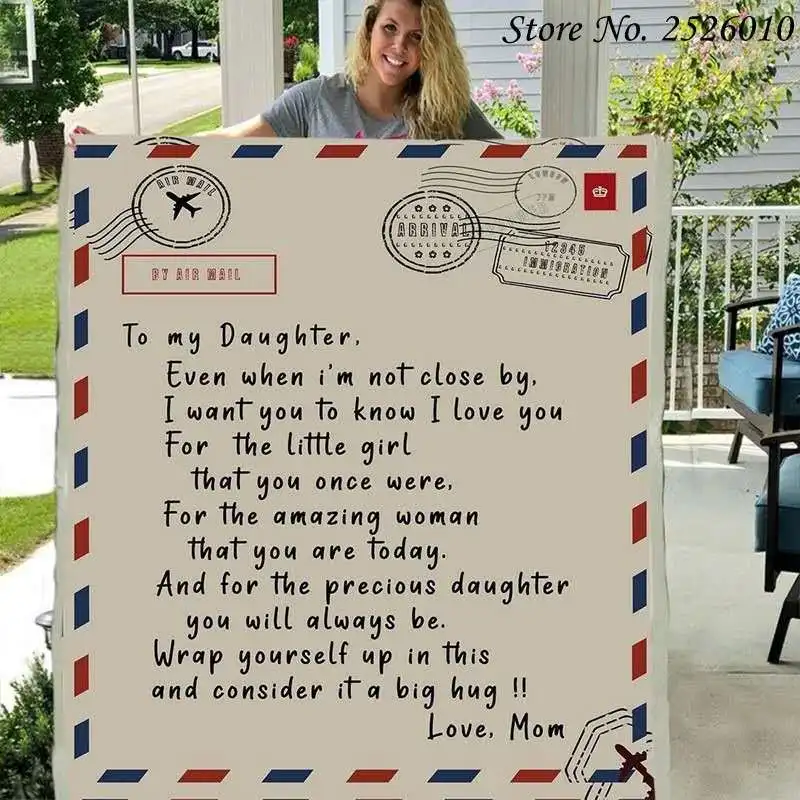 Store No. 2526010
AIR MAIL
LONDON
ARRIVAL
12345
IMMIGRATION
BY AIR MAIL
To my Daughter,
Even when i'm not close by,
I want you to know I love you
For the little girl
that you once were,
For the amazing woman
that you are today.
And for the precious daughter
you will always be.
Wrap yourself up in this
and consider it a big hug !!
Love, Mom